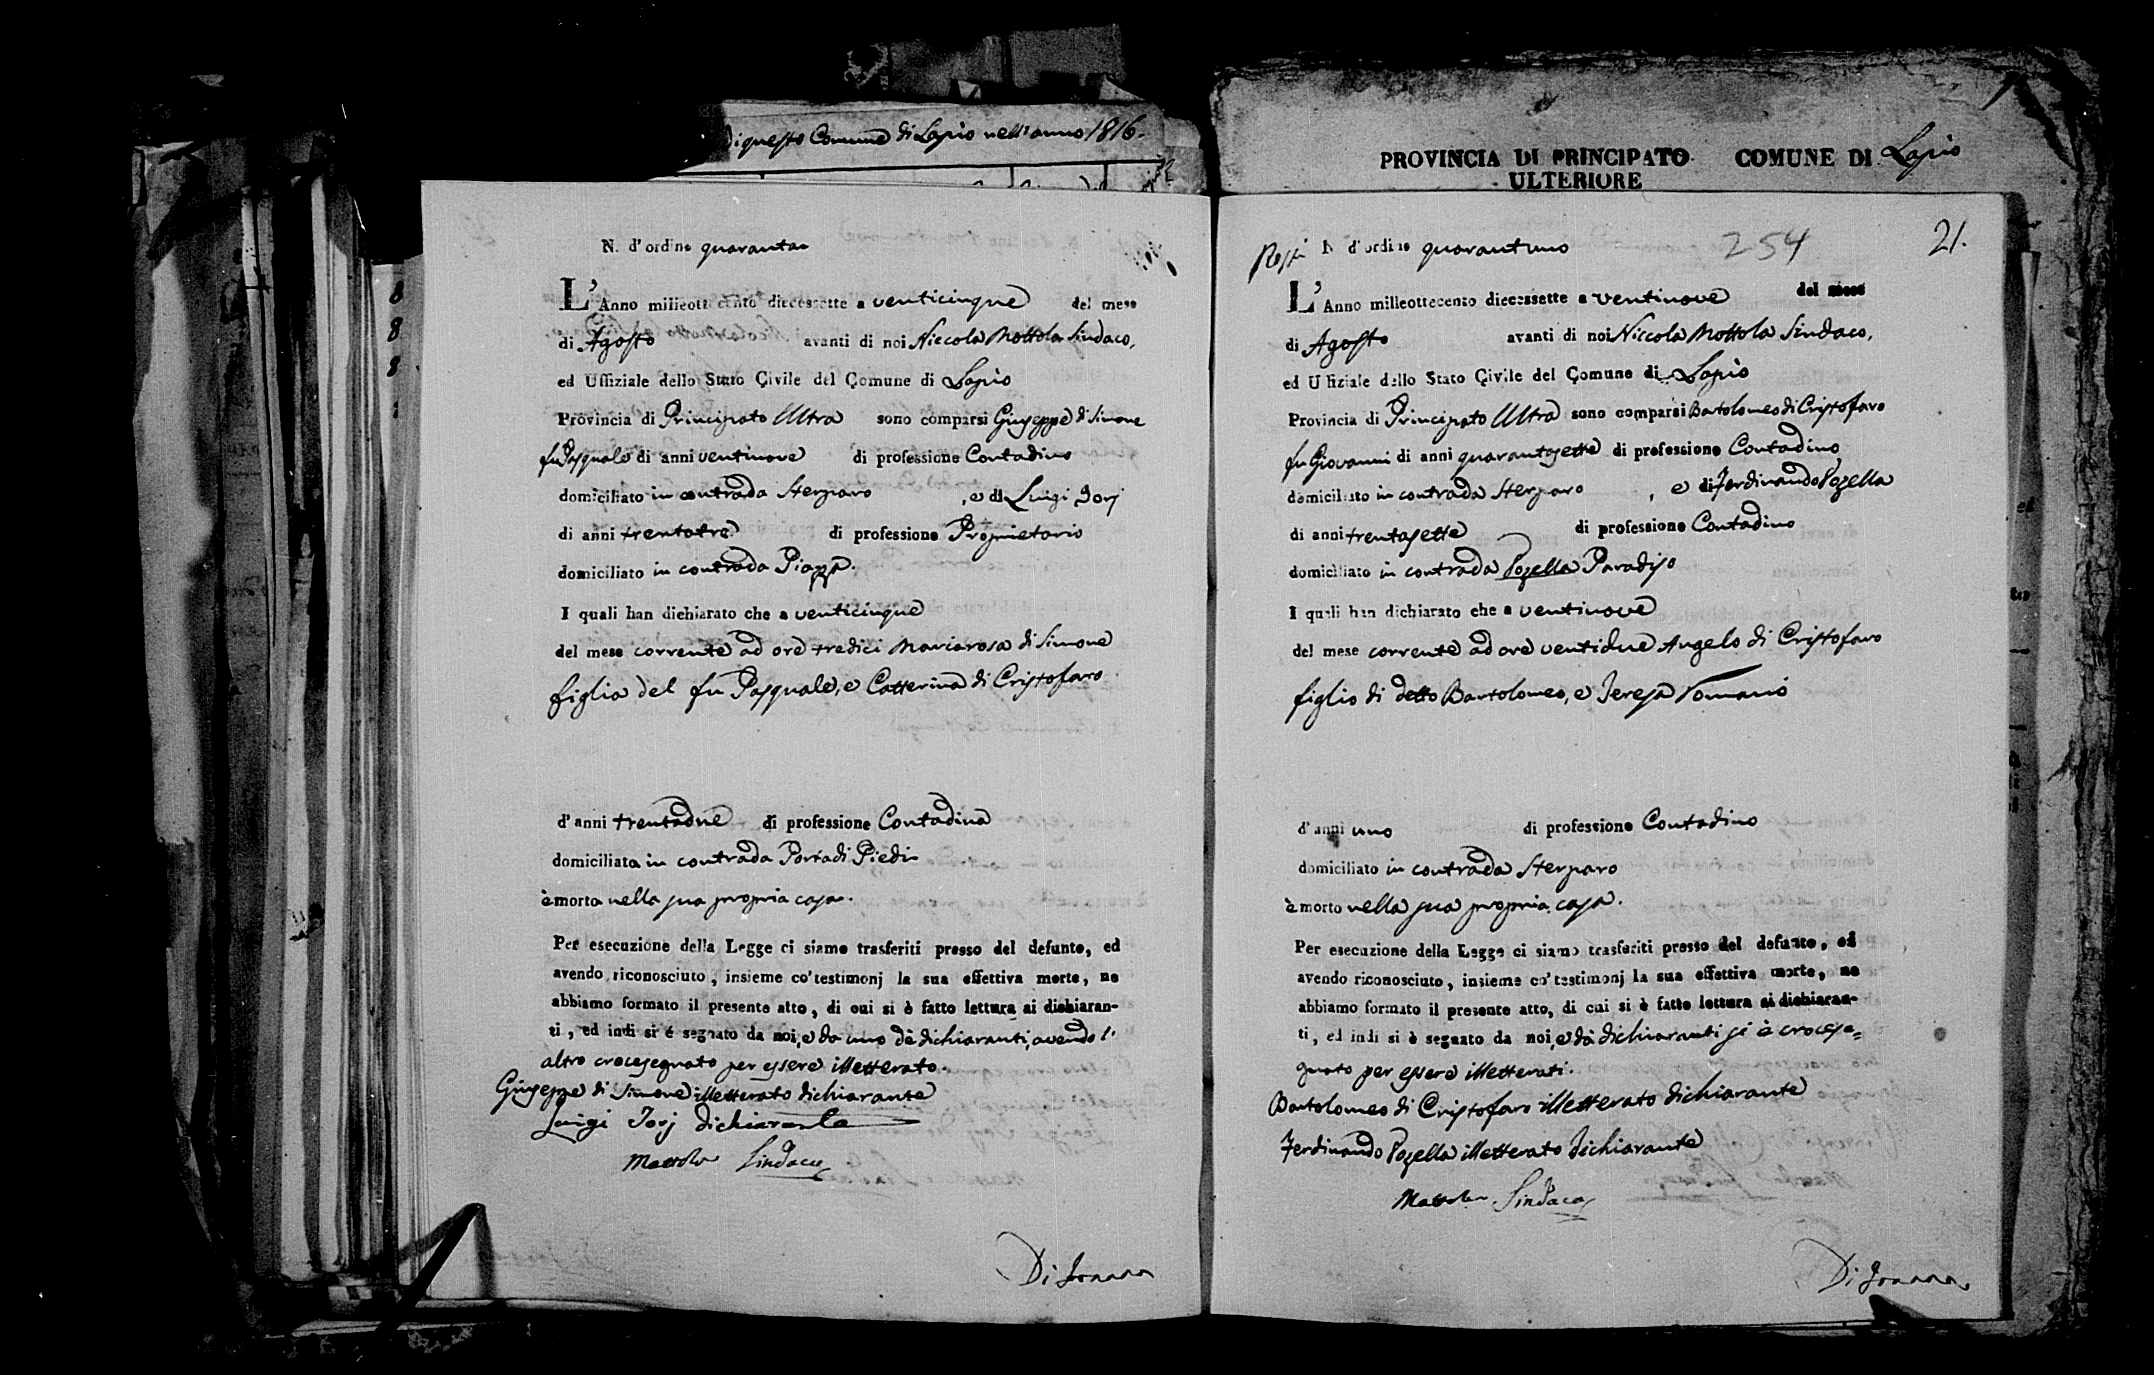 di questo Comune di Lapio nell'anno 1816.
PROVINCIA DI PRINCIPATO COMUNE DI Lapio
ULTERIORE
8
8
8
N. d'ordine quaranta
L'Anno milleottocento diecessette a venticinque del mese
di Agosto avanti di noi Niccola Mottola Sindaco,
ed Uffiziale dello Stato Civile del Comune di Lapio
Provincia di Principato Ultra sono comparsi Giuseppe di Simone
fu Pasquale di anni ventinove di professione Contadino
domiciliato in contrada Sterparo , e di Luigi Iorj
di anni trentatre di professione Proprietario
domiciliato in contrada Piazza.
I quali han dichiarato che a venticinque
del mese corrente ad ore tredici Mariarosa di Simone
figlia del fu Pasquale, e Catterina di Cristofaro
d'anni trentadue di professione Contadina
domiciliata in contrada Portadi Piedi
è morta nella sua propria casa.
Per esecuzione della Legge ci siamo trasferiti presso del defunto, ed
avendo riconosciuto, insieme co'testimonj la sua effettiva morte, ne
abbiamo formato il presente atto, di cui si è fatto lettura ai dichiaran-
ti, ed indi si é segnato da noi, e da uno de dichiaranti, avendo l'
altro crocesegnato per essere illetterato.
Giuseppe di Simone illetterato dichiarante
Luigi Iorj dichiarante
Mottola Sindaco
21.
254
N d'ordine quarantuno
L'Anno milleottecento diecessette a ventinove del mese
di Agosto avanti di noi Niccola Mottola Sindaco,
ed Uffiziale dello Stato Civile del Comune di Lapio
Provincia di Principato Ultra sono comparsi Bartolomeo di Cristofaro
fu Giovanni di anni quarantasette di professione Contadino
domiciliato in contrada Sterparo , e di Ferdinando Pozella
di anni trentasette di professione Contadino
domiciliato in contrada Pozella Paradiso
I quali han dichiarato che a ventinove
del mese corrente ad ore ventidue Angelo di Cristofaro
figlio di detto Bartolomeo, e Teresa Romano
d'anni uno di professione Contadino
domiciliato in contrada Sterparo
è morto nella sua propria casa.
Per esecuzione della Legge ci siamo trasferiti presso del defunto, ed
avendo riconosciuto, insieme co'testimonj la sua effettiva morte, ne
abbiamo formato il presente atto, di cui si è fatto lettura ai dichiaran-
ti, ed indi si è segnato da noi, e da dichiaranti si è crocese=
gnato per essere illetterati.
Bartolomeo di Cristofaro illetterato dichiarante
Ferdinando Pozella illetterato dichiarante
Mottola Sindaco